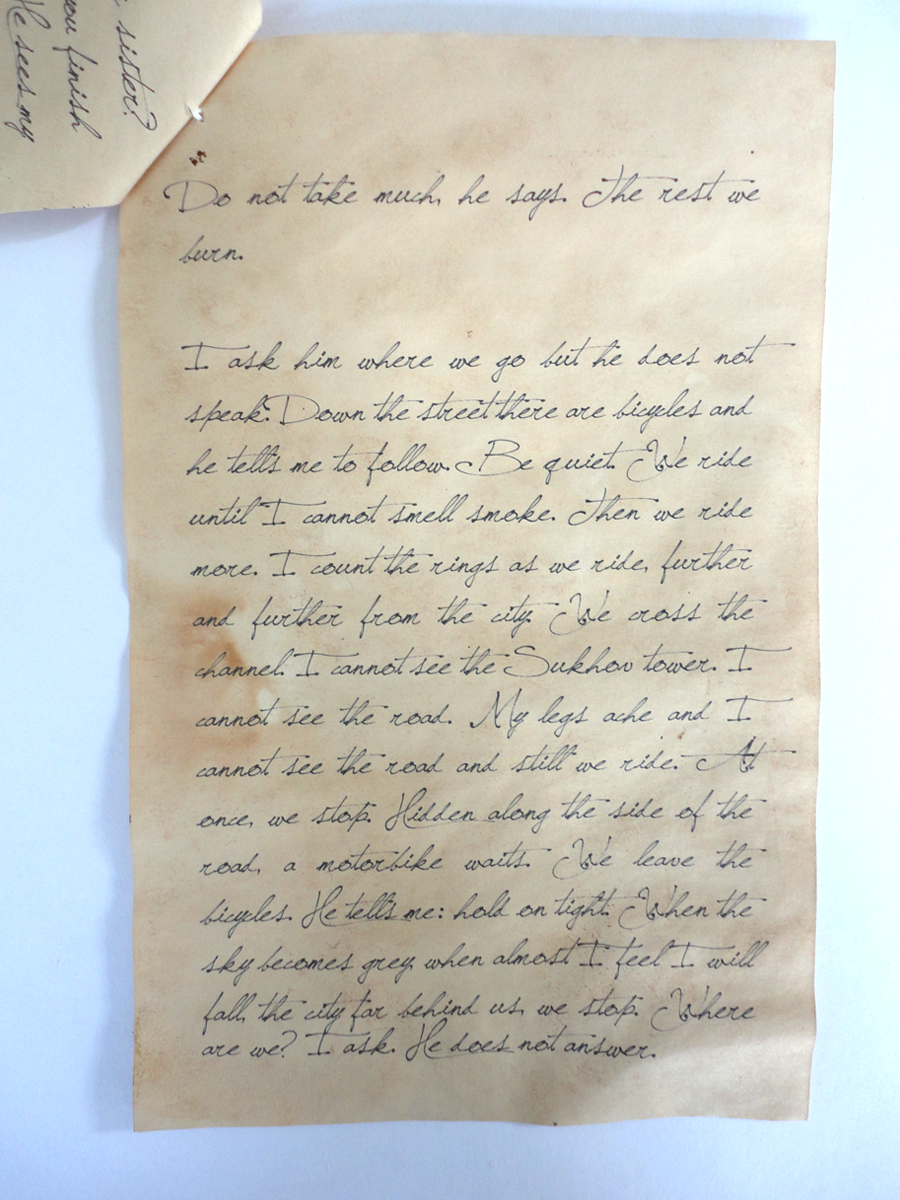 sister?
you finish
He sees my
Do not take much, he says. The rest we
burn.
I ask him where we go but he does not
speak. Down the street there are bicycles and
he tells me to follow. Be quiet. We ride
until I cannot smell smoke. Then we ride
more. I count the rings as we ride, further
and further from the city. We cross the
channel. I cannot see the Sukhov tower. I
cannot see the road. My legs ache and I
cannot see the road and still we ride. At
once, we stop. Hidden along the side of the
road, a motorbike waits. We leave the
bicycles. He tells me: hold on tight. When the
sky becomes grey, when almost I feel I will
fall, the city far behind us, we stop. Where
are we? I ask. He does not answer.